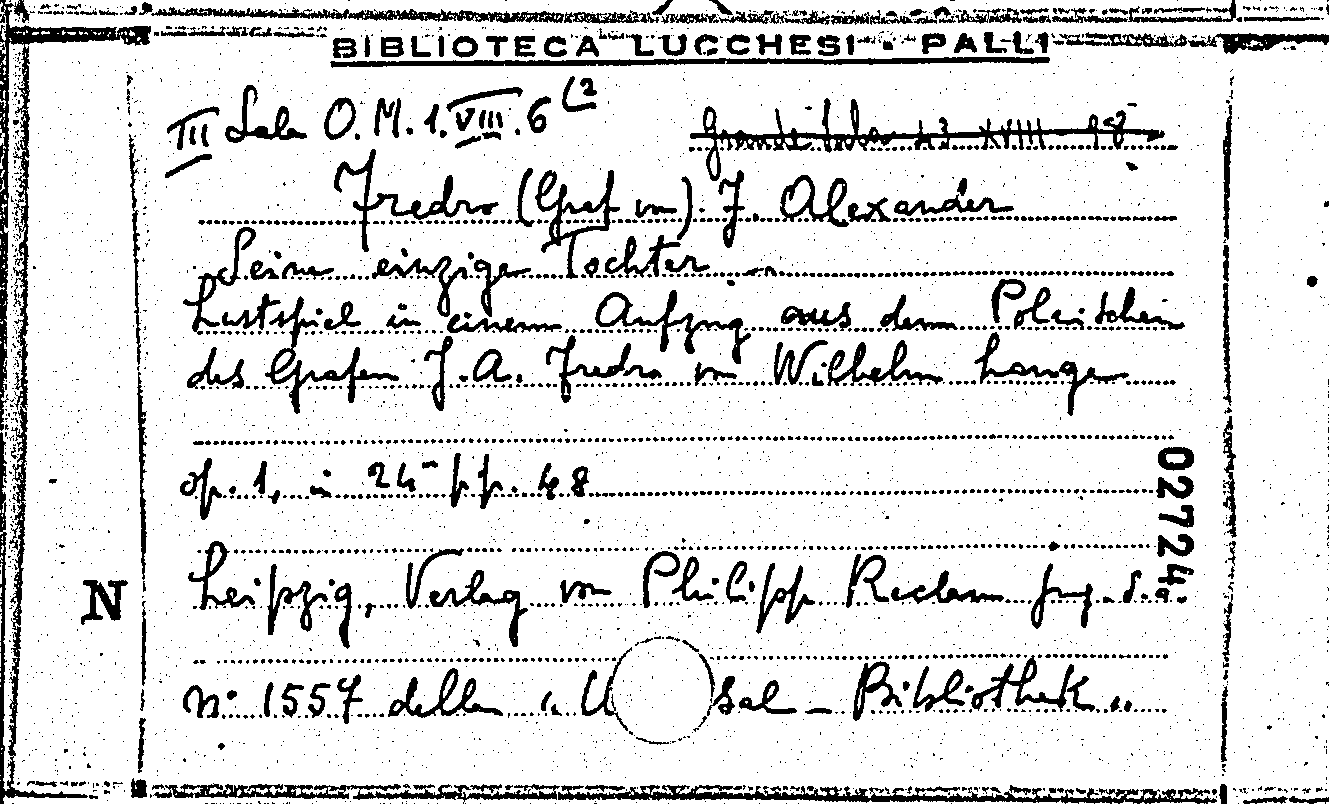 BIBLIOTECA LUCCHESI - PALLI
III Sala O. M. 1. VIII. 6 (2
Grande Sala 23 XVIII - 98
Fredro (Graf von). J. Alexander
Seine einzige Tochter
Lustspiel in einem Aufzug aus dem Polnischen
des Grafen J. A. Fredro von Wilhelm Lange
op. 1, in 24° pp. 48
02724
Leipzig, Verlag von Philipp Reclam jun. s.a.
N
n° 1557 della "U sal - Bibliothek"